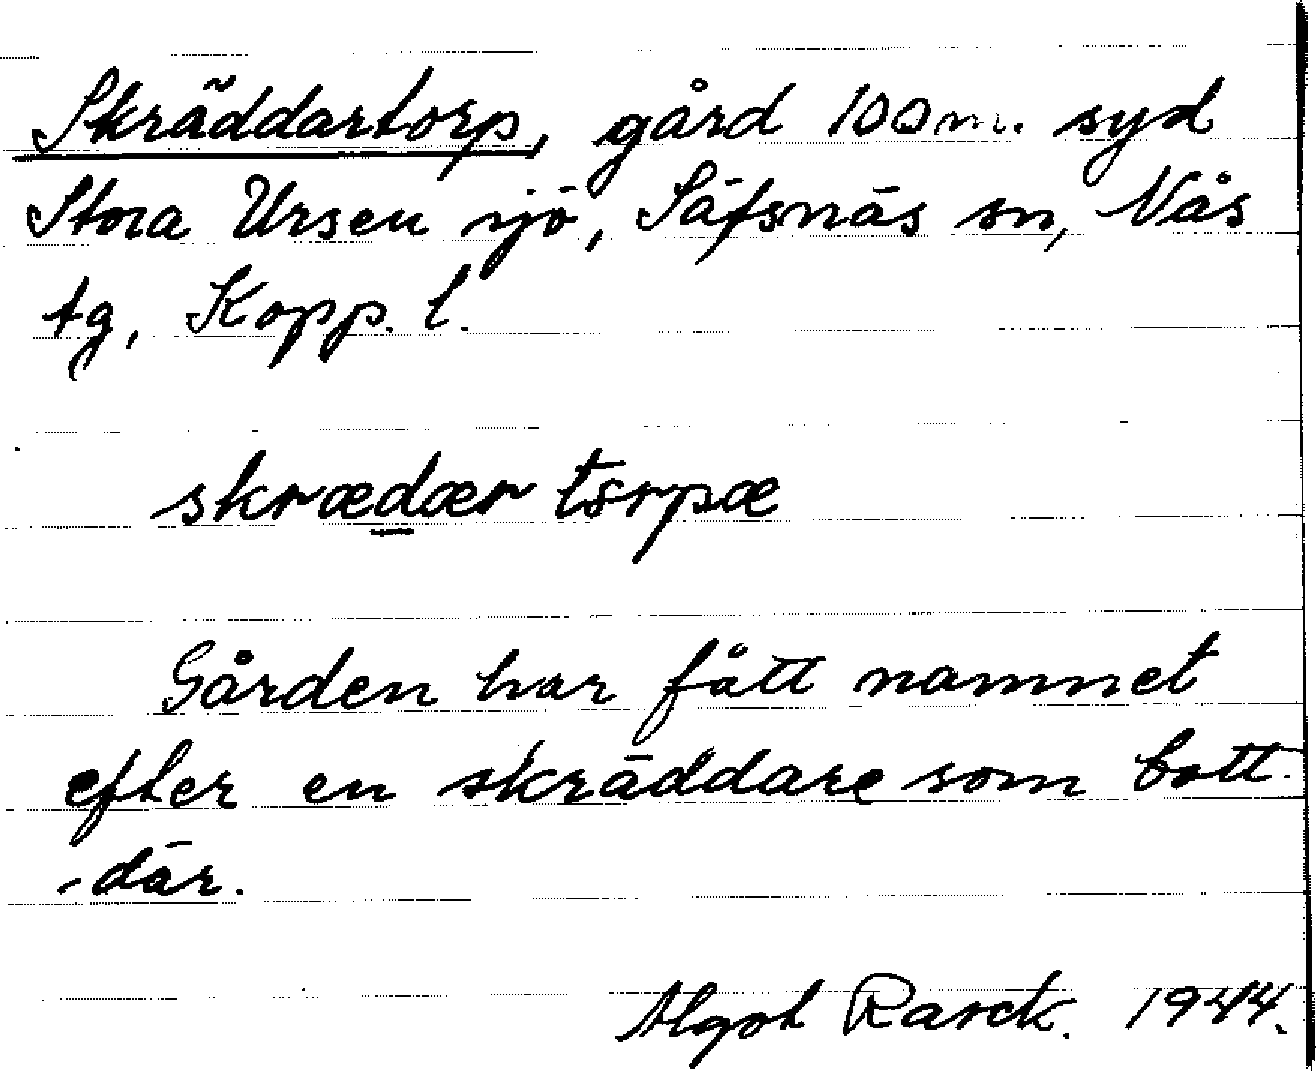 Skräddartorp, gård 100 m. syd
Stora Ursen sjö, Säfsnäs sn, Nås
tg, Kopp. l.
skrædær torpæ
Gården har fått namnet
efter en skräddare som bott
där.
Algot Rarck. 1944.